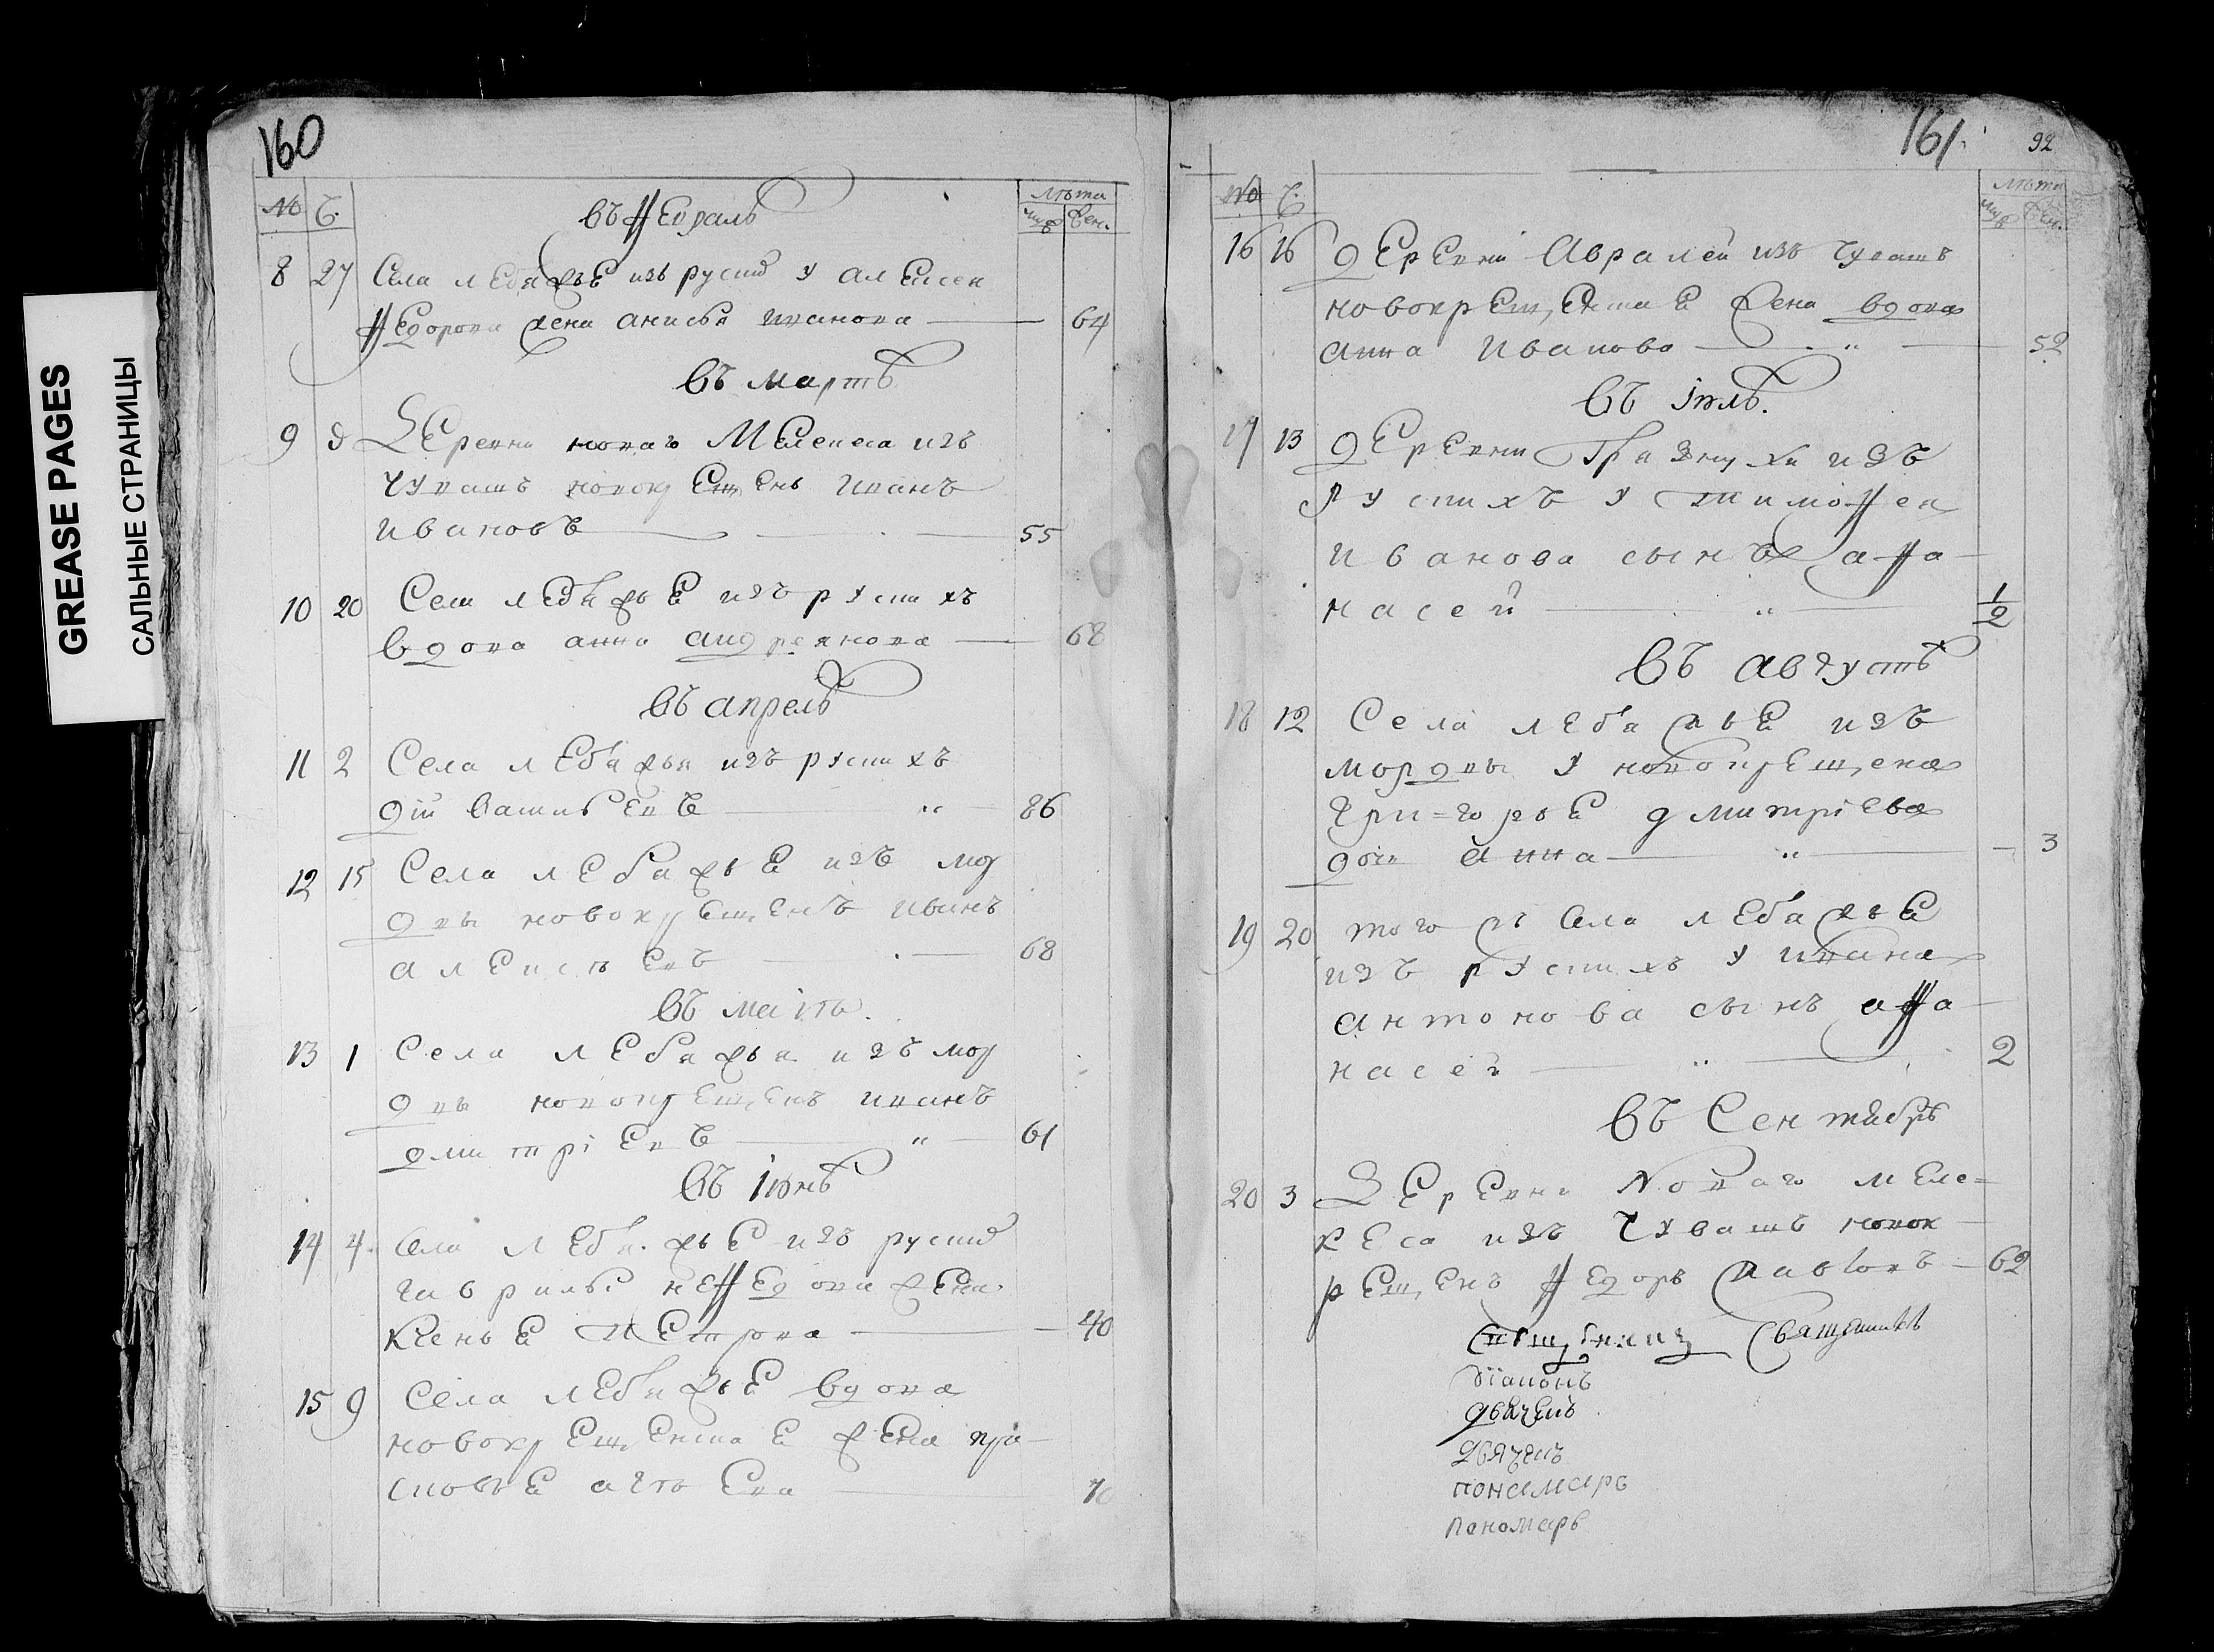 GREASE PAGES
САЛЬНЫЕ СТРАНИЦЫ
160
№ Ч.
Въ Февралѣ
лѣта
муж жен.
8 27 Села Лебяжье изъ руских у Алексея
Федорова жена Анисья Иванова 64
Въ мартѣ
9 9 Деревни новаго Мелекеса изъ
чувашъ новокрещенъ Иванъ
Ивановъ 55
10 20 Села Лебяжье изъ руских
вдова Анна Андреянова 68
Въ апрелѣ
11 2 Села Лебяжья изъ руских
Васильевъ 86
12 15 Села Лебяжье изъ мор
двы новокрещенъ Иванъ
Алексѣевъ 68
Въ маіѣ
13 1 Села Лебяжья изъ мор
двы новокрещенъ Иванъ
Дмитріевъ 61
Въ Іюнѣ
14 4 Села Лебяжье изъ руских
Гаврилы Нефедова жена
Ксенье Петрова 40
15 9 Села Лебяжье вдова
новокрещенская жена Пра
сковье 70
161. 92
№ Ч.
лѣта
муж жен.
16 16 Деревни Авралей изъ чувашъ
новокрещенская жена вдова
Анна Иванова 52
Въ Іюлѣ.
17 13 Деревни Грязнухи изъ
руских у Тимофея
Иванова сынъ Афа
насей 1/2
Въ августѣ
18 12 Села Лебяжье изъ
мордвы у новокрещена
Григорье Дмитріева
дочь Анна 3
19 20 того жъ села Лебяжье
изъ руских у Ивана
Антонова сынъ Афа
насей 2
Въ Сентябрѣ
20 3 Деревни Новаго Меле=
кеса изъ Чувашъ новок
рещенъ Федоръ Павловъ 62
Священникъ
діаконъ
дьячекъ
дьячекъ
пономарь
пономарь